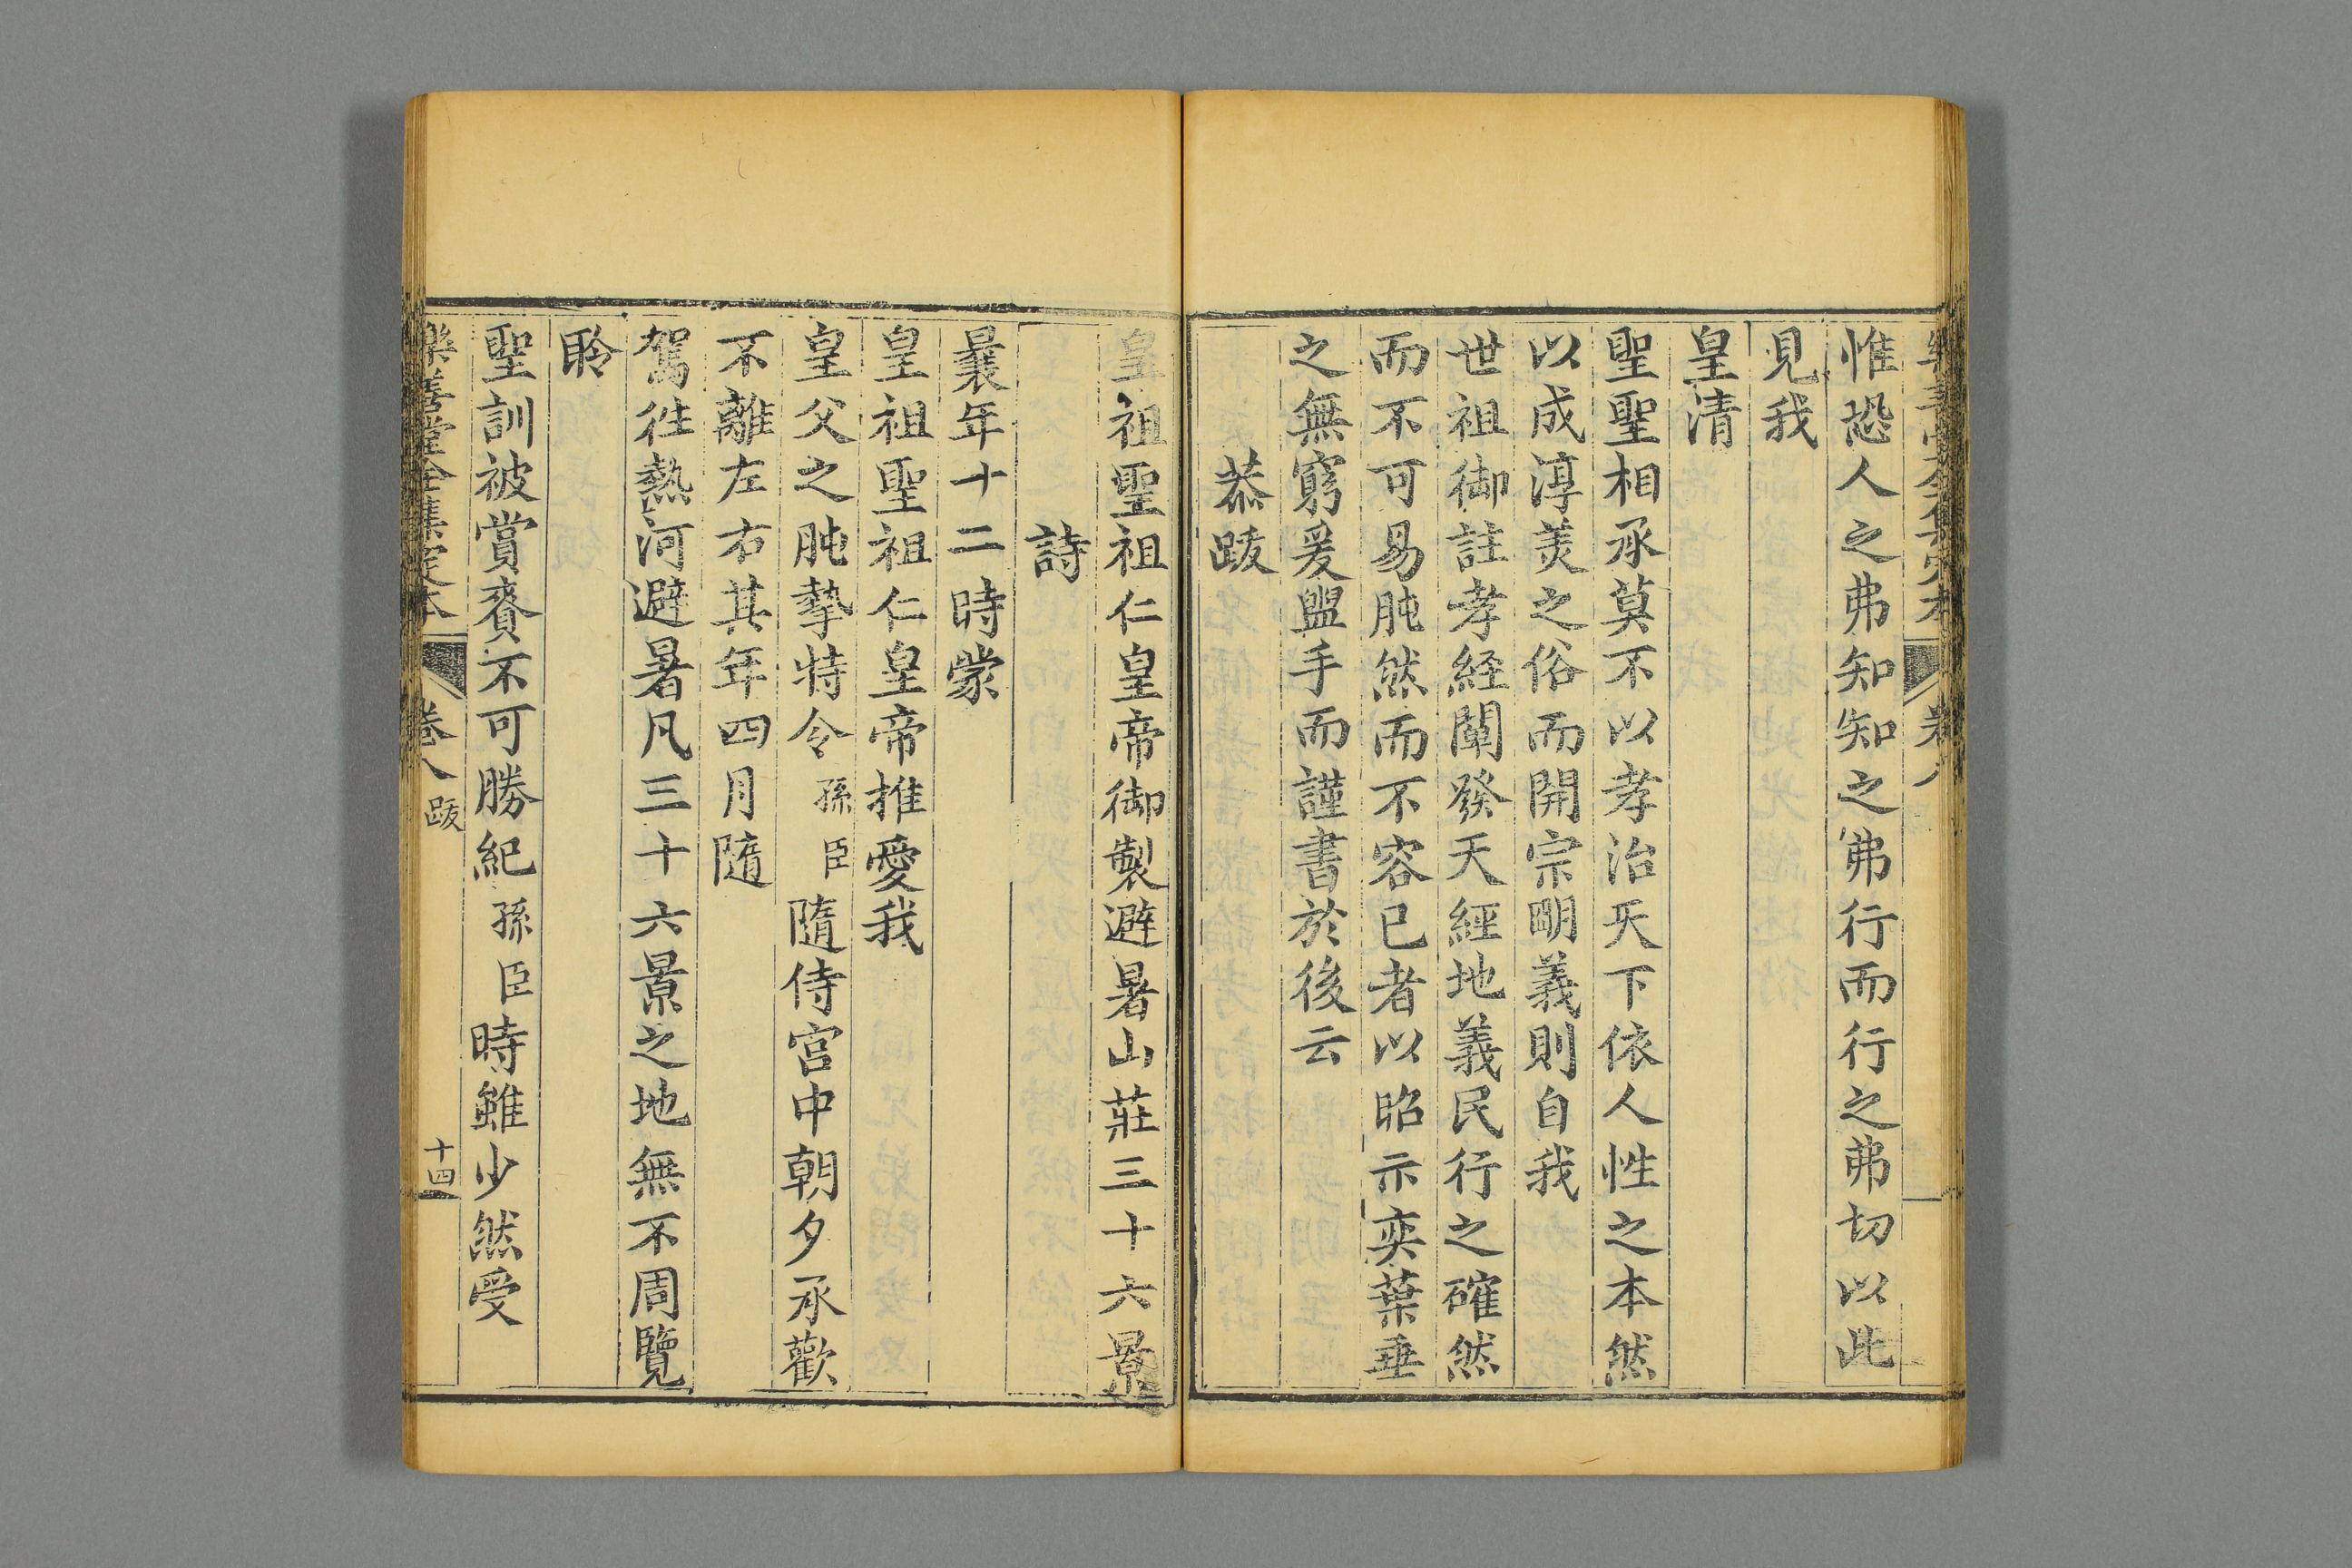 樂善堂全集定本 卷八
惟恐人之弗知知之弗行而行之弗切以此
見我
皇清
聖聖相承莫不以孝治天下依人性之本然
以成淳美之俗而開宗明義則自我
世祖御註孝經闡發天經地義民行之確然
而不可易肫然而不容已者以昭示奕葉垂
之無窮爰盥手而謹書於後云
恭跋
皇祖聖祖仁皇帝御製避暑山莊三十六景
詩
曩年十二時蒙
皇祖聖祖仁皇帝推愛我
皇父之肫摯特令孫臣隨侍宮中朝夕承歡
不離左右其年四月隨
駕往熱河避暑凡三十六景之地無不周覽
聆
聖訓被賞賚不可勝紀孫臣時雖少然受
樂善堂全集定本 卷八 跋 十四